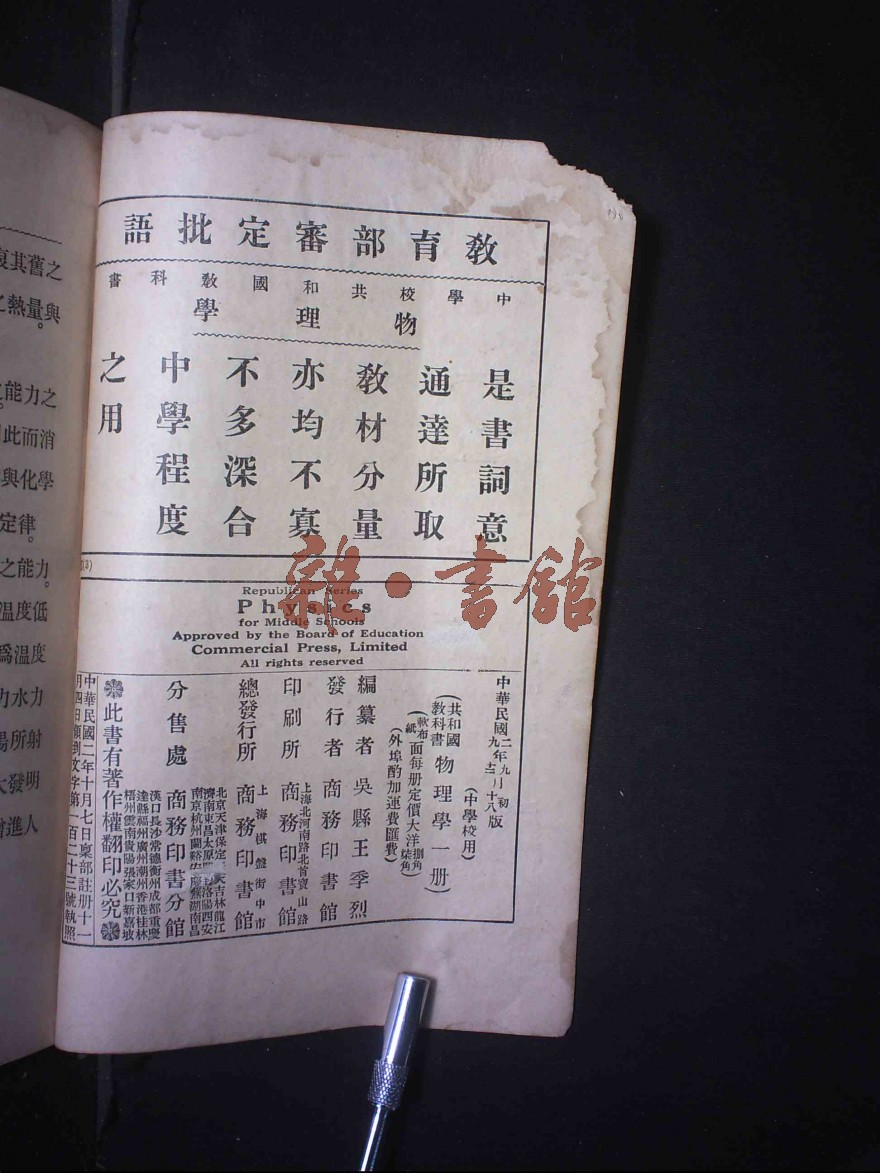 教育部審定批語
中學校共和國教科書
物理學
是書詞意
通達所取
教材分量
亦均不寡
不多深合
中學程度
之用
Republican Series
Physics
for Middle Schools
Approved by the Board of Education
Commercial Press, Limited
All rights reserved
中華民國二年九月初版
(中學校用)
(共和國教科書物理學一册)
(外埠酌加運費匯費)
編纂者 吳縣王季烈
發行者 商務印書館
印刷所 上海北河南路北首寶山路 商務印書館
總發行所 上海棋盤街中市 商務印書館
分售處 商務印書分館
漢口長沙常德衡州成都重慶
達縣福州廣州潮州香港桂林
梧州雲南貴陽張家口新嘉坡
此書有著作權翻印必究
中華民國二年十月七日稟部註册十一
月四日領到文字第一百二十三號執照
雜·書館
復其舊之
熱量與
能力之
此而消
與化學
定律。
之能力。
溫度低
爲溫度
力水力
陽所射
大發明
進人